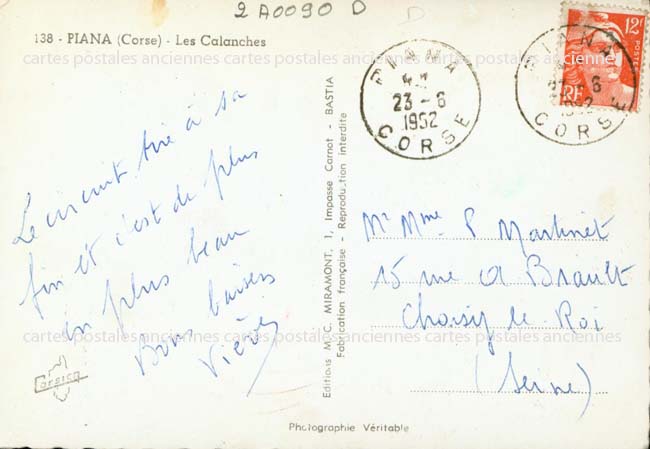 2 A0090 D D
138 - PIANA (Corse) - Les Calanches
12F
POSTES
RF
PIANA
23 - 6
1952
CORSE
PIANA
23 - 6
1952
CORSE
Le circuit tire à sa
fin et c'est de plus
en plus beau
Bons baisers
Corsica
Editions M. C. MIRAMONT, 1, Impasse Carnot - BASTIA
Fabrication française - Reproduction interdite
Mr Mme P Martinet
15 rue A Briault
Choisy le Roi
(Seine)
Photographie Véritable
cartes postales anciennes cartes postales anciennes cartes postales anciennes
cartes postales anciennes cartes postales anciennes cartes postales anciennes